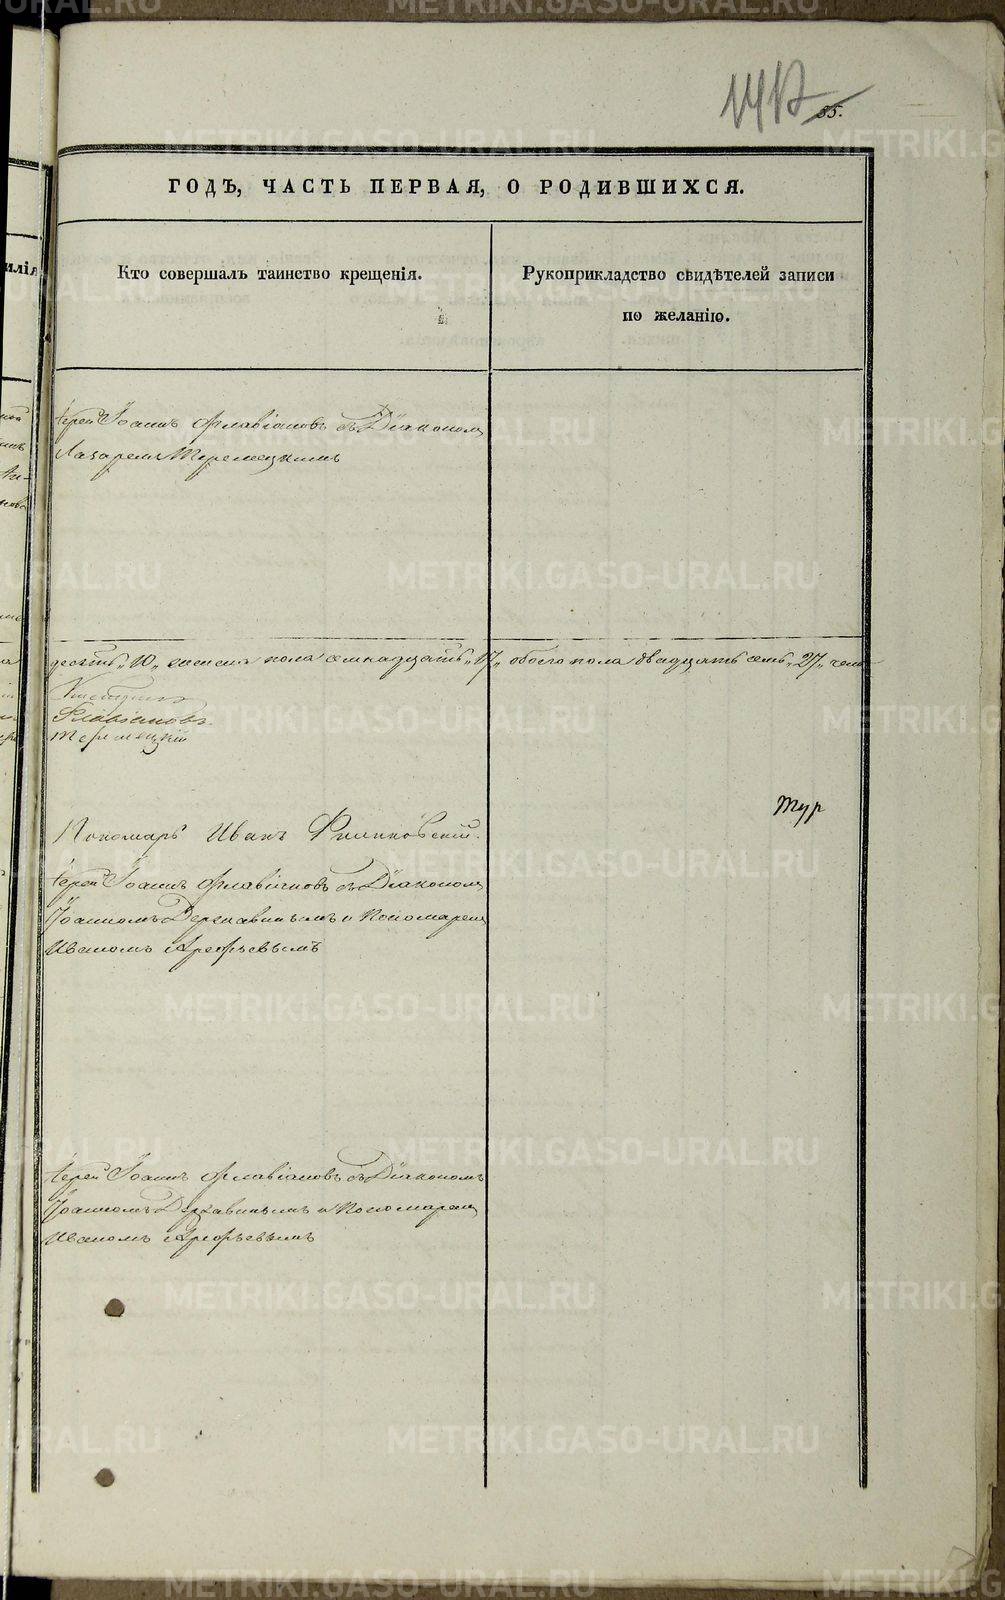 1417
85.
ГОДЪ, ЧАСТЬ ПЕРВАЯ, О РОДИВШИХСЯ.
Кто совершалъ таинство крещенія.
Рукоприкладство свидѣтелей записи
по желанію.
Іерей Іоаннъ Флавіановъ съ Діакономъ
Лазаремъ Теремецкимъ
десять „10„ женска пола семнадцать „17„ обоего пола двадцать семь „27„ чело
Флавіановъ
Теремецкій
Тур
Пономарь Иванъ
Іерей Іоаннъ Флавіановъ съ Діакономъ
Іоанномъ Державинымъ и Пономаремъ
Иваномъ Арефьевымъ
Іерей Іоаннъ Флавіановъ съ Діакономъ
Іоанномъ Державинымъ и Пономаремъ
Иваномъ Арефьевымъ
METRIKI.GASO-URAL.RU